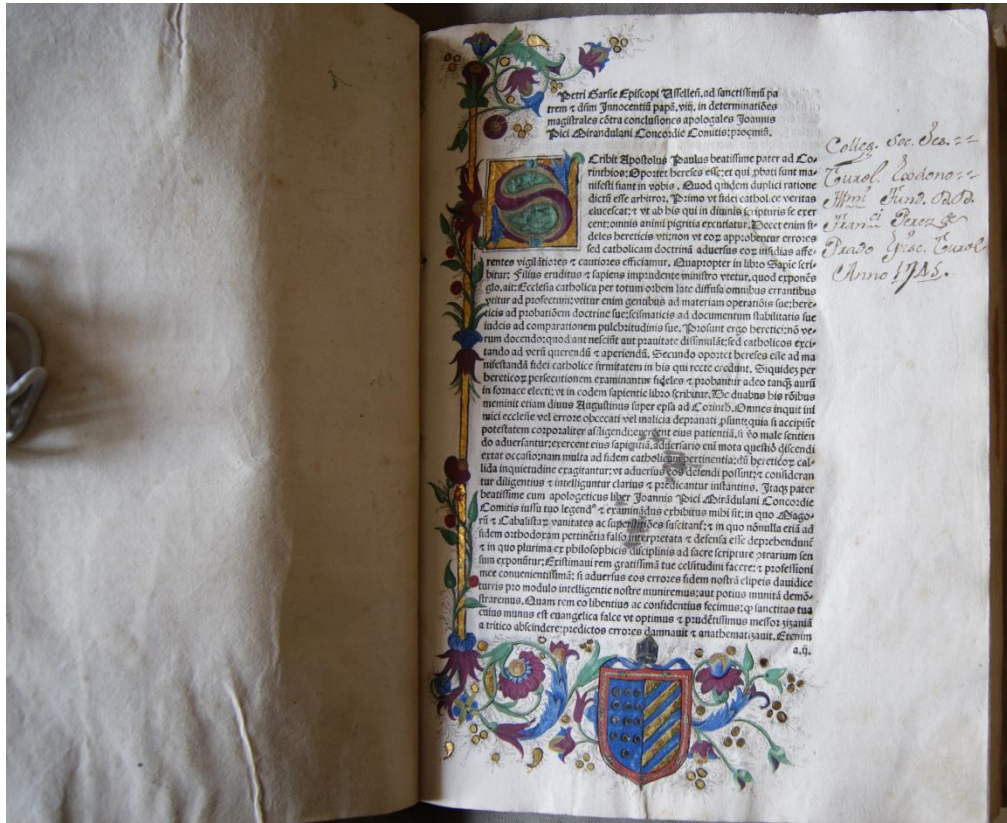 Petri Garsie Episcopi Ussellen. ad sanctissimū pa
trem ⁊ dn̄m Innocentiū papā. viii. in determinatiōes
magistrales cōtra conclusiones apologales Joannis
Pici Mirandulani Concordie Comitis: proemiū.
SCribit Apostolus Paulus beatissime pater ad Co-
rinthios: Oportet hereses esse: et qui ꝓbati sunt ma-
nifesti fiant in vobis. Quod quidem duplici ratione
dictū esse arbitror. Primo vt fidei catholice veritas
elucescat: ⁊ vt ab his qui in diuinis scripturis se exer
cent: omnis animi pigritia excutiatur. Decet enim fi-
deles hereticis vti: non vt eoꝝ approbentur errores
sed catholicam doctrinā aduersus eoꝝ insidias affe-
rentes vigilātiores ⁊ cautiores efficiamur. Quapropter in libro Sapiē scri-
bitur: Filius eruditus ⁊ sapiens imprudente ministro vtetur. quod exponēs
glo. ait: Ecclesia catholica per totum orbem late diffusa omnibus errantibus
vtitur ad profectum: vtitur enim gentibus ad materiam operatiōis sue: here-
ticis ad probatiōem doctrine sue: scismaticis ad documentum stabilitatis sue
iudeis ad comparationem pulchritudinis sue. Prosunt ergo heretici: nō ve-
rum docendo: quod aut nesciūt aut prauitate dissimulāt: sed catholicos exci-
tando ad verū querendū ⁊ aperiendū. Secundo oportet hereses esse ad ma
nifestandā fidei catholice firmitatem in his qui recte credunt. Siquidez per
hereticoꝝ persecutionem examinantur fideles ⁊ probantur adeo tanqꝫ aurū
in fornace electi: vt in eodem sapientie libro scribitur. De duabus his rōibus
meminit etiam diuus Augustinus super ep̄la ad Corinth. Omnes inquit ini
mici ecclesie vel errore obcecati vel malicia deprauati ꝓsunt: quia si accipiūt
potestatem corporaliter affligendi: exercent eius patientiā. si ṽo male sentien
do aduersantur: exercent eius sapiētiā. aduersario eni mota questiō discendi
extat occasio: nam multa ad fidem catholicam pertinentia: dū hereticoꝝ cal-
lida inquietudine exagitantur: vt aduersus eos defendi possint: ⁊ consideran
tur diligentius ⁊ intelliguntur clarius ⁊ predicantur instantius. Itaqꝫ pater
beatissime cum apologeticus liber Joannis Pici Mirādulani Concordie
Comitis iussu tuo legendꝰ ⁊ examinādus exhibitus mihi sit: in quo Mago-
rū ⁊ Cabalistaꝝ vanitates ac superstitiōes suscitant̄: ⁊ in quo nōnulla etiā ad
fidem orthodoxam pertinētia falso interpretata ⁊ defensa esse deprehendunt̄
⁊ in quo plurima ex philosophicis disciplinis ad sacre scripture ꝯtrarium sen
sum exponūtur: Existimaui rem gratissimā tue celsitudini facere: ⁊ professioni
mee conuenientissimā: si aduersus eos errores fidem nostrā clipeis dauidice
turris pro modulo intelligentie nostre muniremus: aut potius munitā demō-
straremus. Quam rem eo libentius ac confidentius fecimus: ꝙ sanctitas tua
cuius munus est euangelica falce vt optimus ⁊ prudētissimus messor zizania
a tritico abscindere: predictos errores damnauit ⁊ anathematizauit. Etenim
a.ij.
Colleg. Soc. Jes.
Turol. Ex dono
Illmi Fund. D.D.
Franci Perez de
Prado Episc. Turol.
Anno 1745.